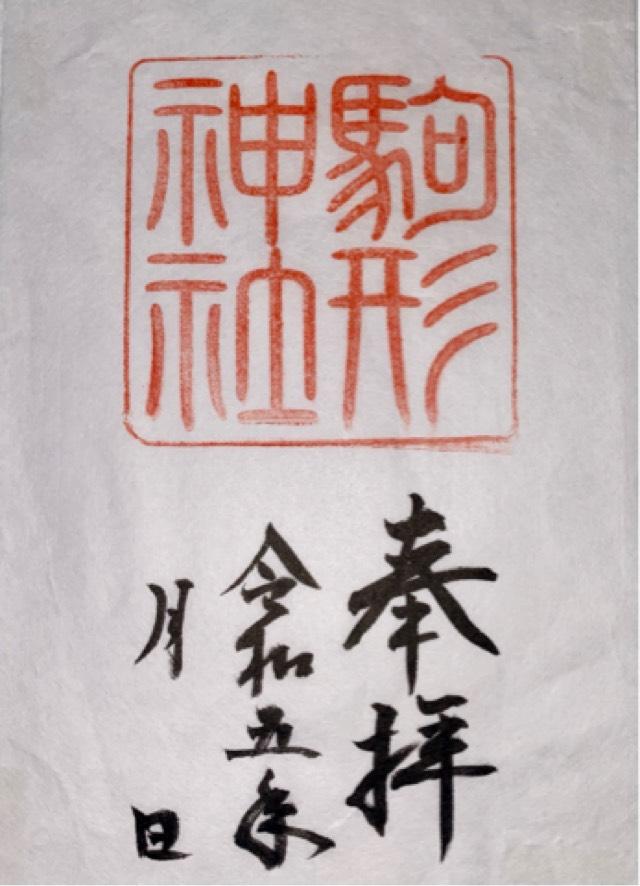 駒形
神社
奉拝
令和五年
月 日